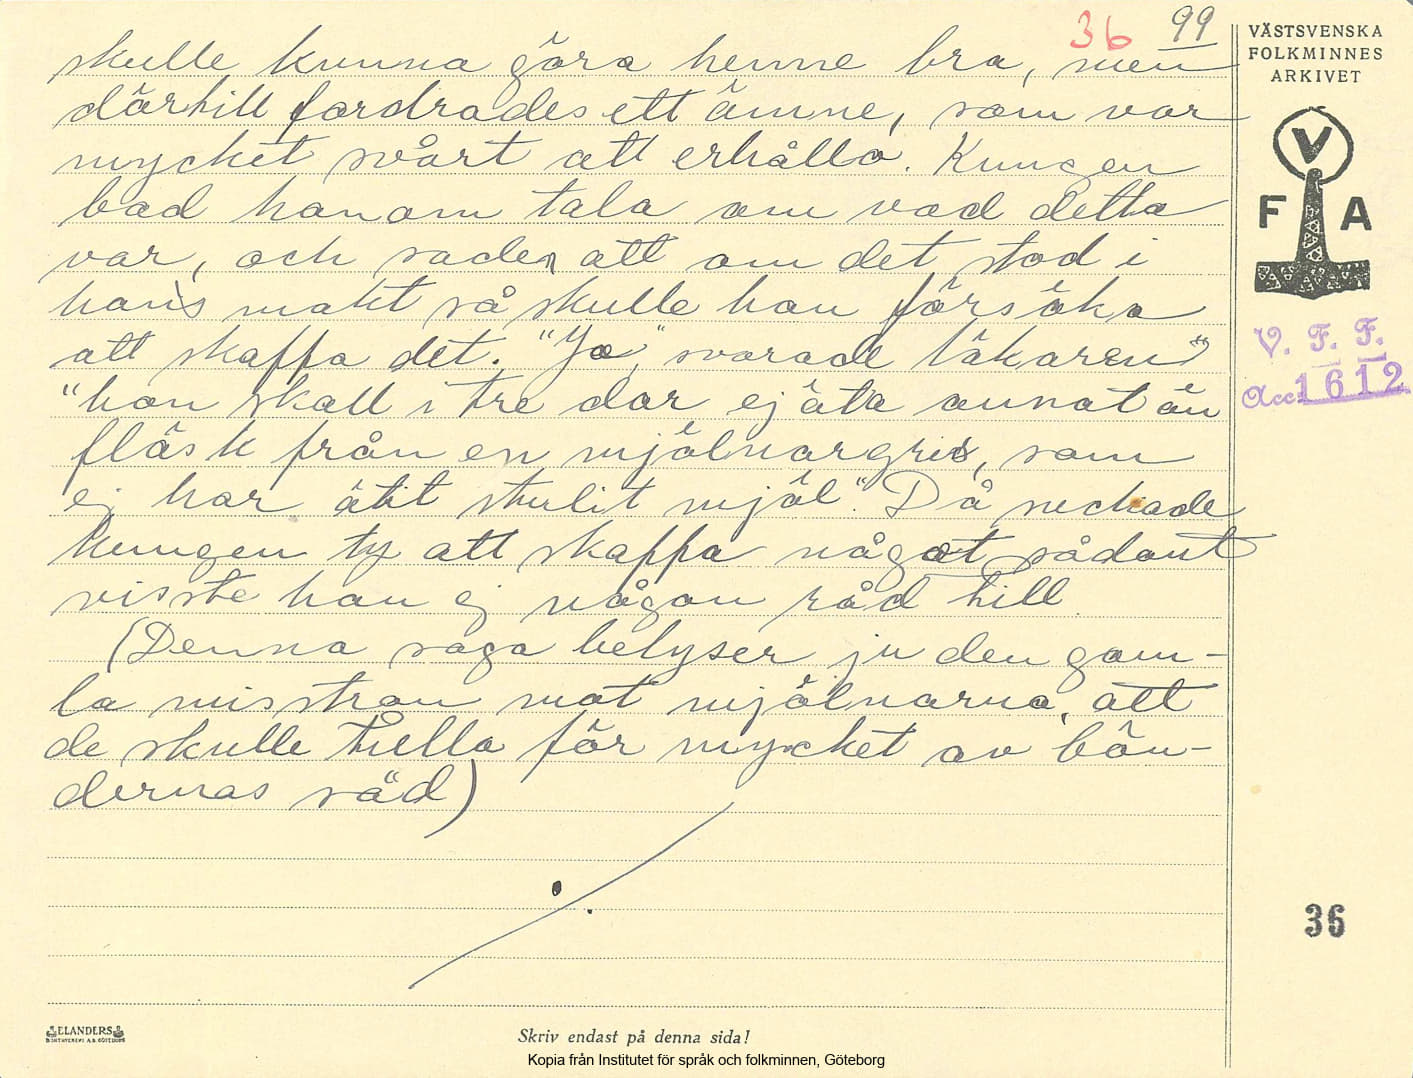 36 99
skulle kunna göra henne bra, men
därtill fordrades ett ämne, som var
mycket svårt att erhålla. Kungen
bad honom tala om vad detta
var, och sade att om det stod i
hans makt så skulle han försöka
att skaffa det. "Ja", svarade läkaren
"hon skall i tre dar ej äta annat än
fläsk från en mjölnargris, som
ej har ätit stulit mjöl". Då suckade
kungen ty att skaffa något sådant
visste han ej någon råd till.
(Denna saga belyser ju den gam-
la misstron mot mjölnarna, att
de skulle tulla för mycket av bön-
dernas säd)
VÄSTSVENSKA
FOLKMINNES
ARKIVET
V
F A
V. F. F.
Acc. 1612
36
ELANDERS
Skriv endast på denna sida!
Kopia från Institutet för språk och folkminnen, Göteborg